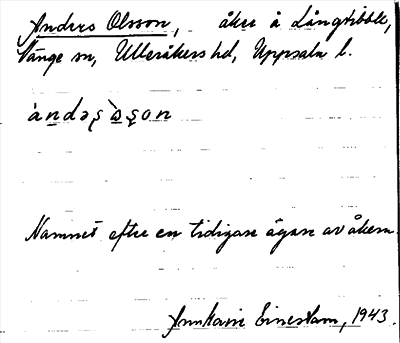 Anders Olsson, åker å Långtibble,
Vänge sn, Ulleråkers hd, Uppsala l.
àndəʂ ò̀ʂon
Namnet efter en tidigare ägare av åkern.
Einestam, 1943.